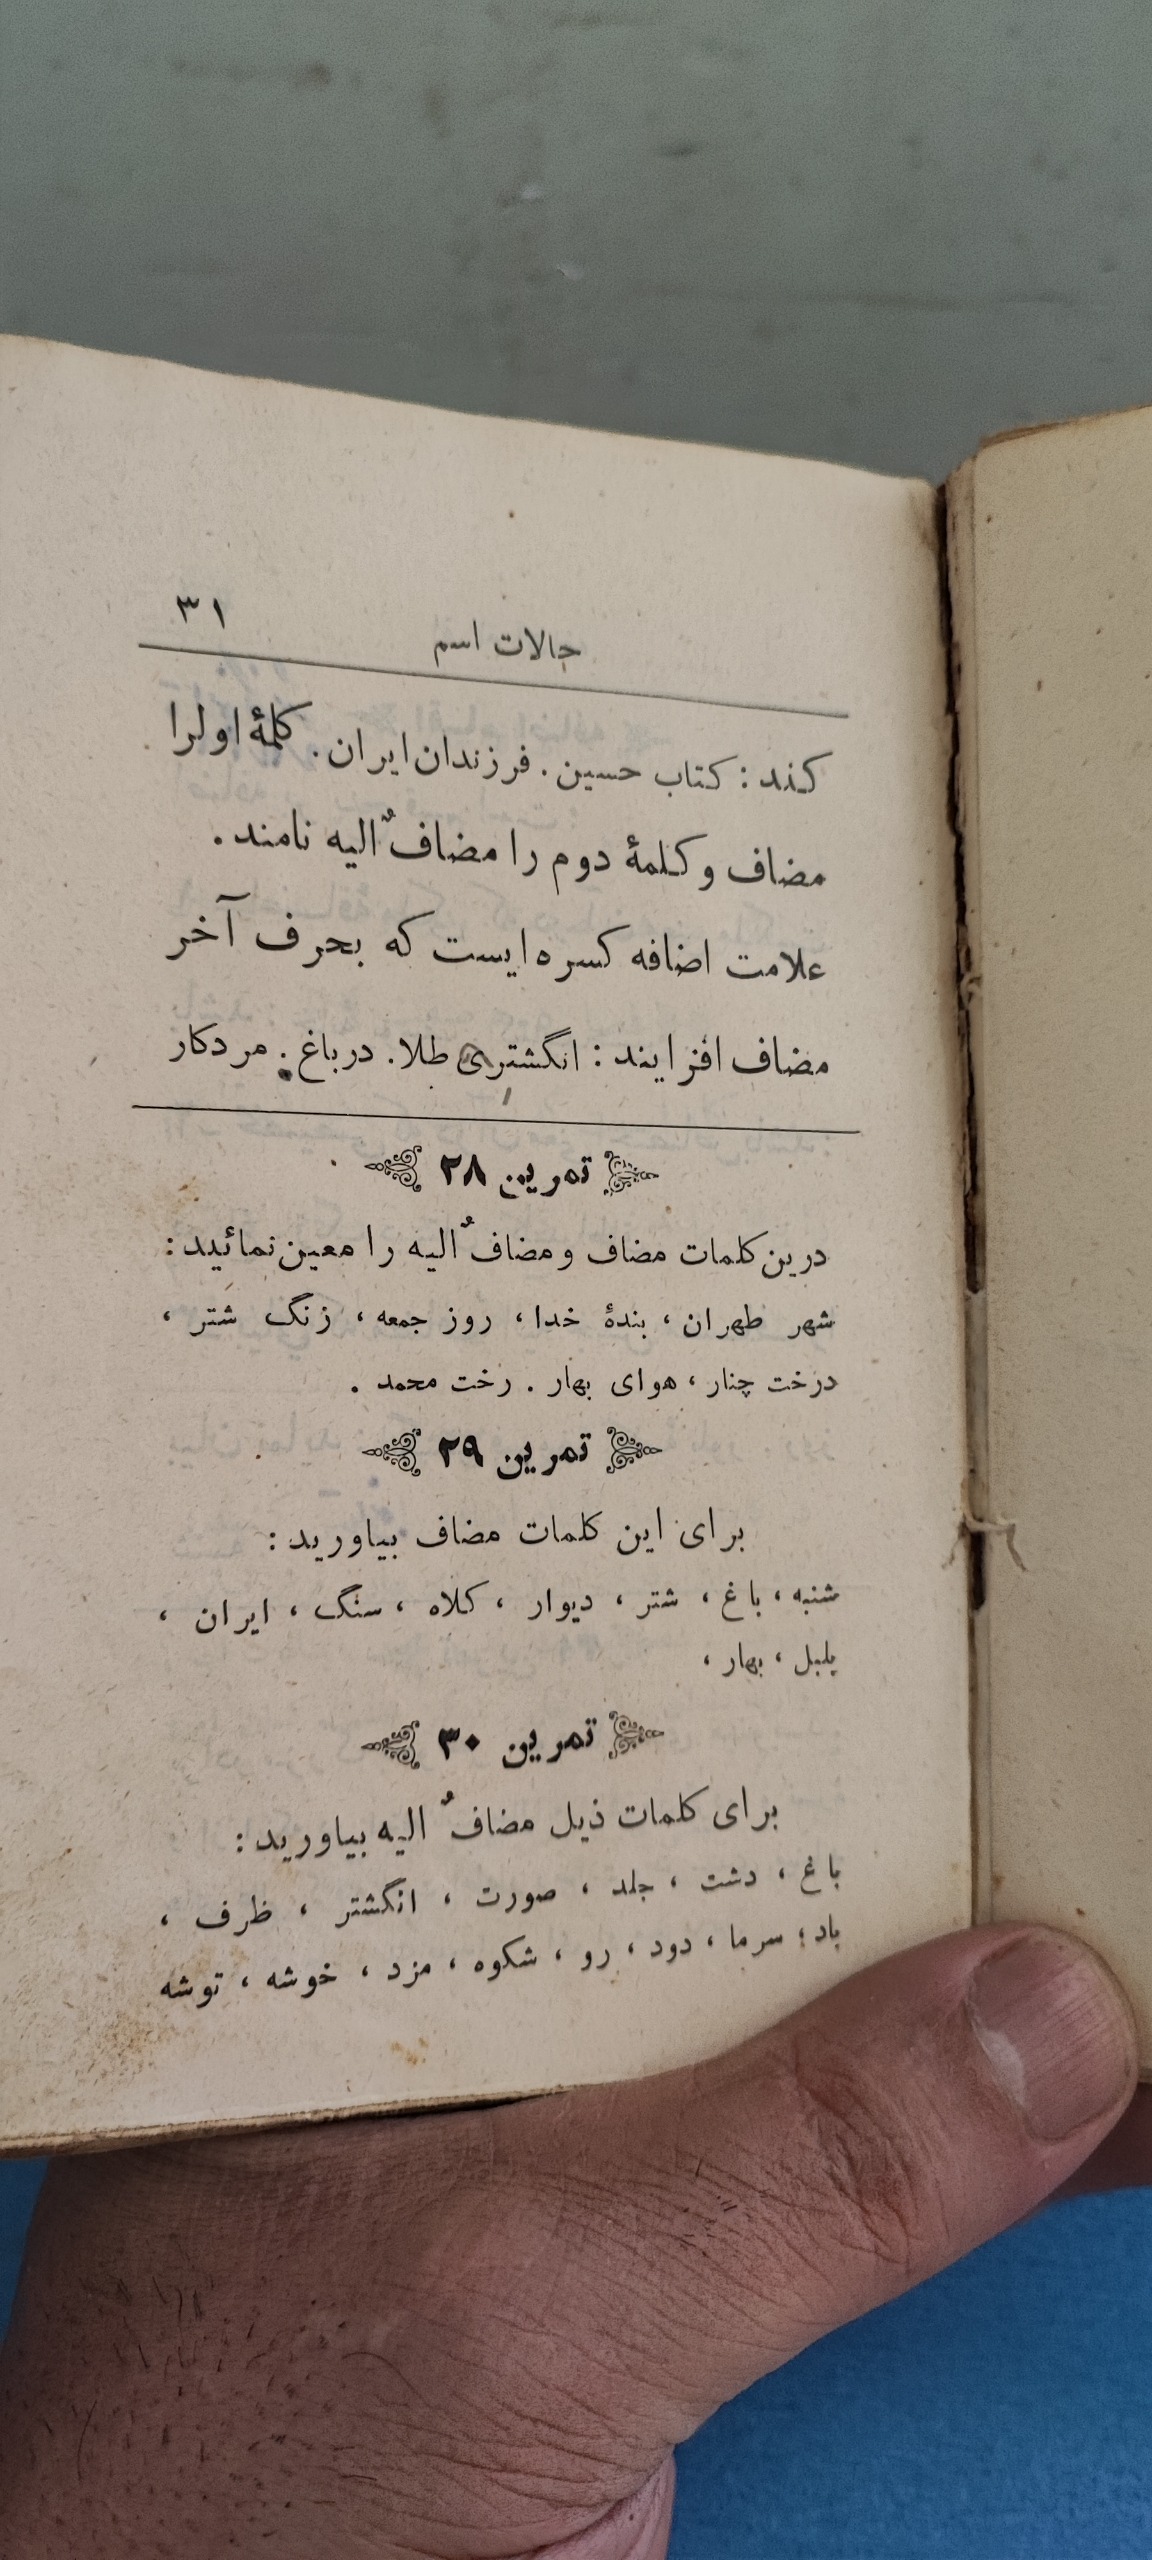 حالات اسم ۳۱
کند : کتاب حسین . فرزندان ایران . کلمهٔ اولرا
مضاف و کلمهٔ دوم را مضافٌ الیه نامند .
علامت اضافه کسره ایست که بحرف آخر
مضاف افزایند : انگشتری طلا . در باغ . مرد کار
تمرین ۲۸
درین کلمات مضاف و مضافٌ الیه را معین نمائید :
شهر طهران ، بندهٔ خدا ، روز جمعه ، زنگ شتر ،
درخت چنار ، هوای بهار . رخت محمد .
تمرین ۲۹
برای این کلمات مضاف بیاورید :
شنبه ، باغ ، شتر ، دیوار ، کلاه ، سنگ ، ایران ،
بلبل ، بهار ،
تمرین ۳۰
برای کلمات ذیل مضافٌ الیه بیاورید :
باغ ، دشت ، جلد ، صورت ، انگشتر ، ظرف ،
باد ؛ سرما ، دود ، رو ، شکوه ، مزد ، خوشه ، توشه